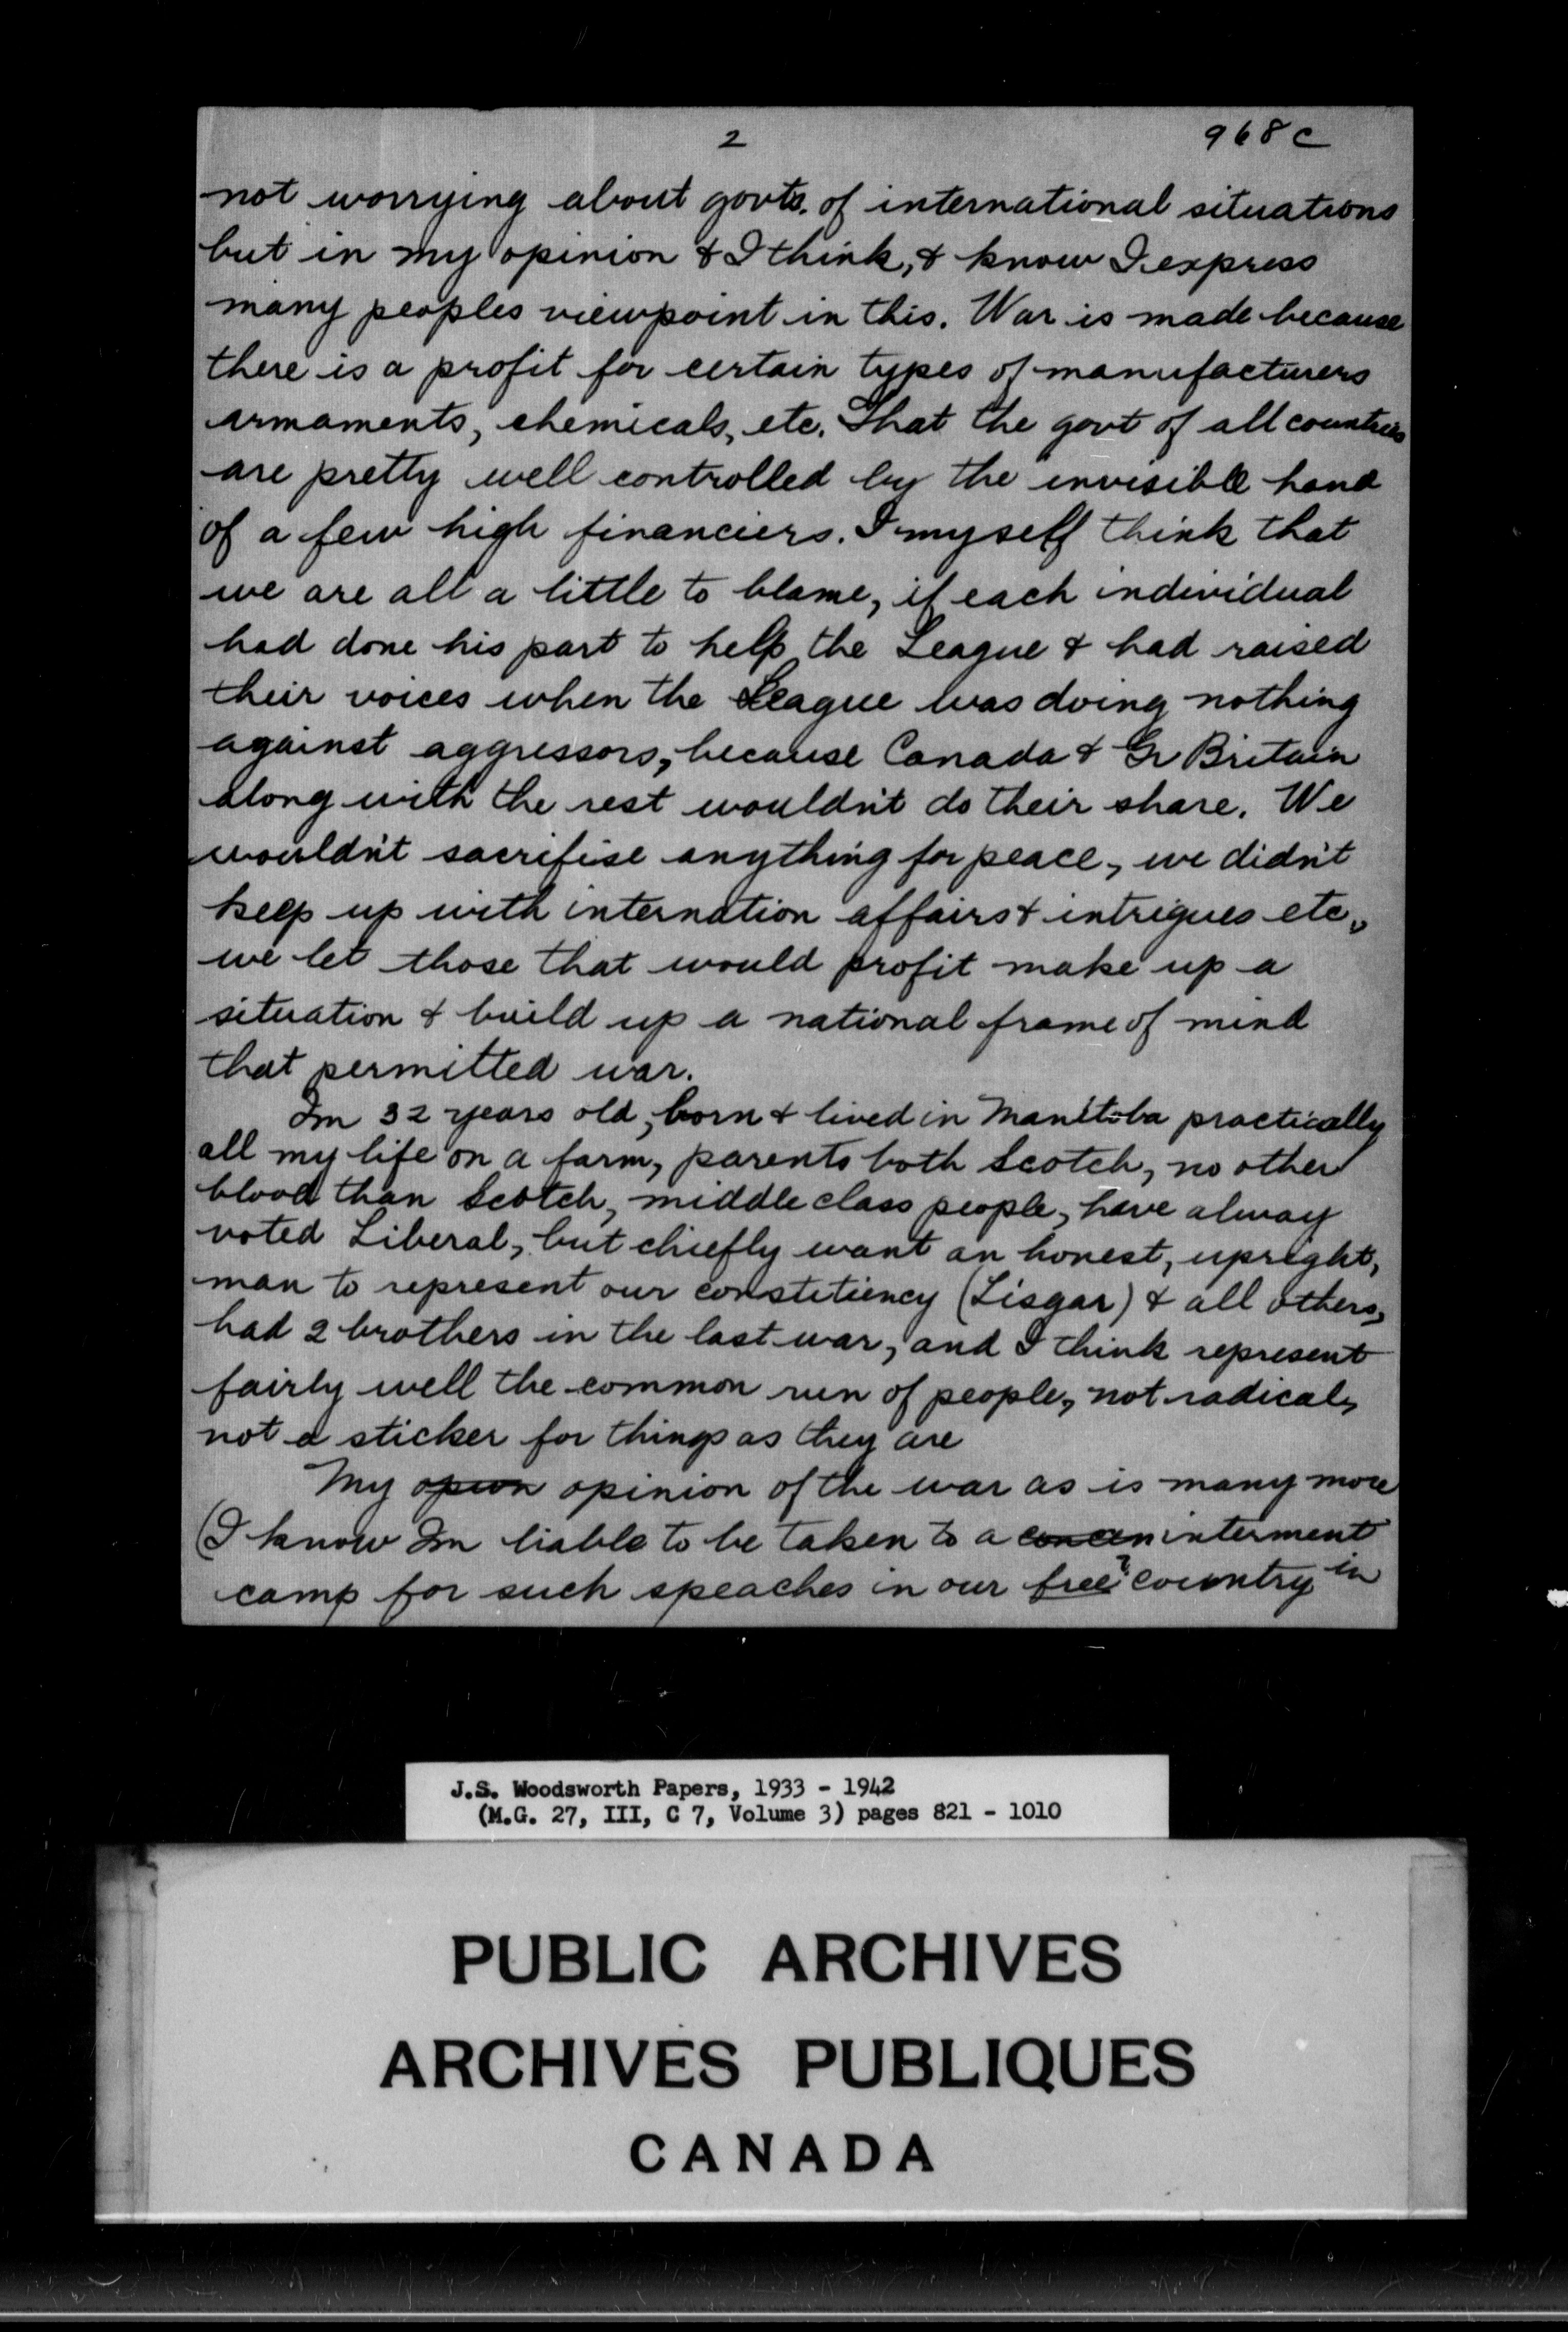 2
968 C
not worrying about govts. of international situations
but in my opinion & I think, & know I express
many peoples viewpoint in this. War is made because
there is a profit for certain types of manufacturers
armaments, chemicals, etc. That the govt of all countries
are pretty well controlled by the invisible hand
of a few high financiers. I myself think that
we are all a little to blame, if each individual
had done his part to help the League & had raised
their voices when the League was doing nothing
against aggressors, because Canada & Gr Britain
along with the rest wouldn't do their share. We
wouldn't sacrifise anything for peace, we didn't
keep up with internation affairs & intrigues etc.,
we let those that would profit make up a
situation & build up a national frame of mind
that permitted war.
Im 32 years old, born & lived in Manitoba practically
all my life on a farm, parents both Scotch, no other
blood than Scotch, middle class people, have alway
voted Liberal, but chiefly want an honest, upright,
man to represent our constetiency (Lisgar) & all others,
had 2 brothers in the last war, and I think represent
fairly well the common run of people, not radical,
not a sticker for things as they are
My opion opinion of the war as is many more
(I know Im liable to be taken to a concen interment
camp for such speaches in our free? country in
J.S. Woodsworth Papers, 1933 - 1942
(M.G. 27, III, C 7, Volume 3) pages 821 - 1010
PUBLIC ARCHIVES
ARCHIVES PUBLIQUES
CANADA